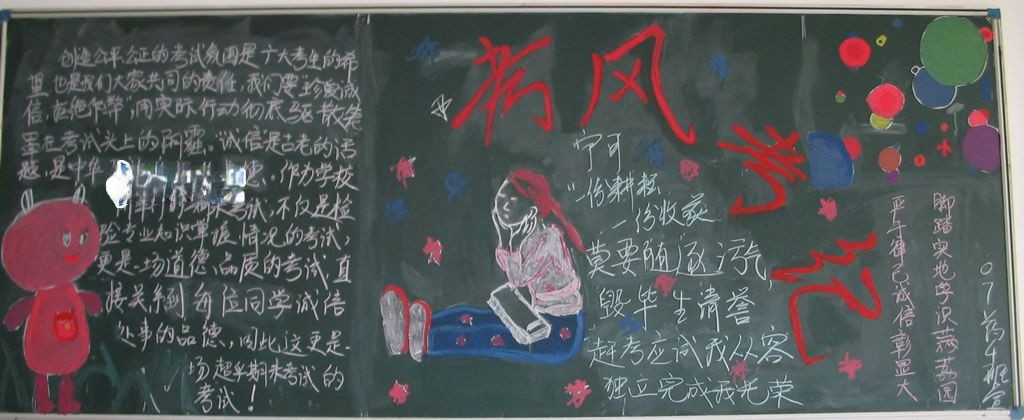 创造公平公正的考试氛围是广大考生的希
望也是我们大家共同的责任,我们要"珍重诚
信,拒绝作弊"用实际行动彻底驱散笼
罩在考试头上的阴霾。诚信是古老的话
题,是中华
德,作为学校
期末考试,不仅是检
验专业知识掌握情况的考试,
更是一场道德、品质的考试,直
接关系到每位同学诚信
处事的品德,因此,这更是一
场超越期末考试的
考试!
药风考纪
宁可
一份耕耘
一份收获
莫要随逐污气
毁毕生清誉
赶考应试我从容
独立完成我光荣
脚踏实地学识
园
严于律己诚信彰显大
07药
班宣